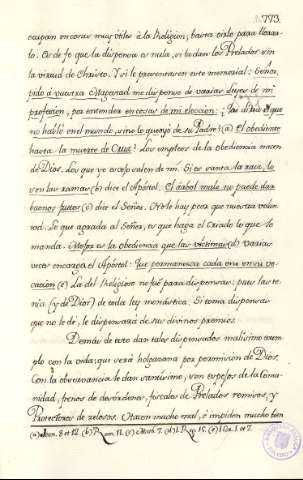 773.
cupan en cosas muy utiles à la Religion; basta
to. Es de fe que la dispensa es nula, si la dan los Prelados sin
la virtud de Christo. Y si le presentaran este memorial: Señor,
pido à vuestra Magestad me dispense de varias leyes de mi
profesion, por entender en cosas de mi eleccion: que
no habló en el mundo, sino lo que oyó de su Padre? (a) El obediente
hasta la muerte de Cruz? Los empleos de la obediencia nacen
de Dios. Los que yo escojo salen de mi. Si es santa la raiz, lo
son las ramas (b) dice el Apostol. El arbol malo no puede dar
buenos frutos (c) dice el Señor. No le hay peor que nuestra volun-
tad. Lo que agrada al Señor, es que haga el criado lo que le
manda. Mejor es la obediencia que las victimas (d) Varias
veces encarga el Apostol: Que permanezca cada uno en su vo-
cacion (e) La del Religioso no fue para dispensas: pues las te-
nia (y de Dios) de toda ley monastica. Si toma dispensas
que no le dé, le dispensará de sus divinos premios.
Demás de esto dan tales dispensados malisimo exem-
plo con la vida; que será holgazana por permision de Dios.
Con la observancia le dan santisimo, son espejos de la Comu-
nidad, frenos de desordenes, fiscales de Prelados remisos, y
Protectores de zelosos. Hacen mucho mal, è impiden mucho bien
(a) Joan. 8 et 12. (b) Rom. 11. (c) Math. 7. (d) 1. Reg. 15. (e) 1. Cor. 1. et 7.